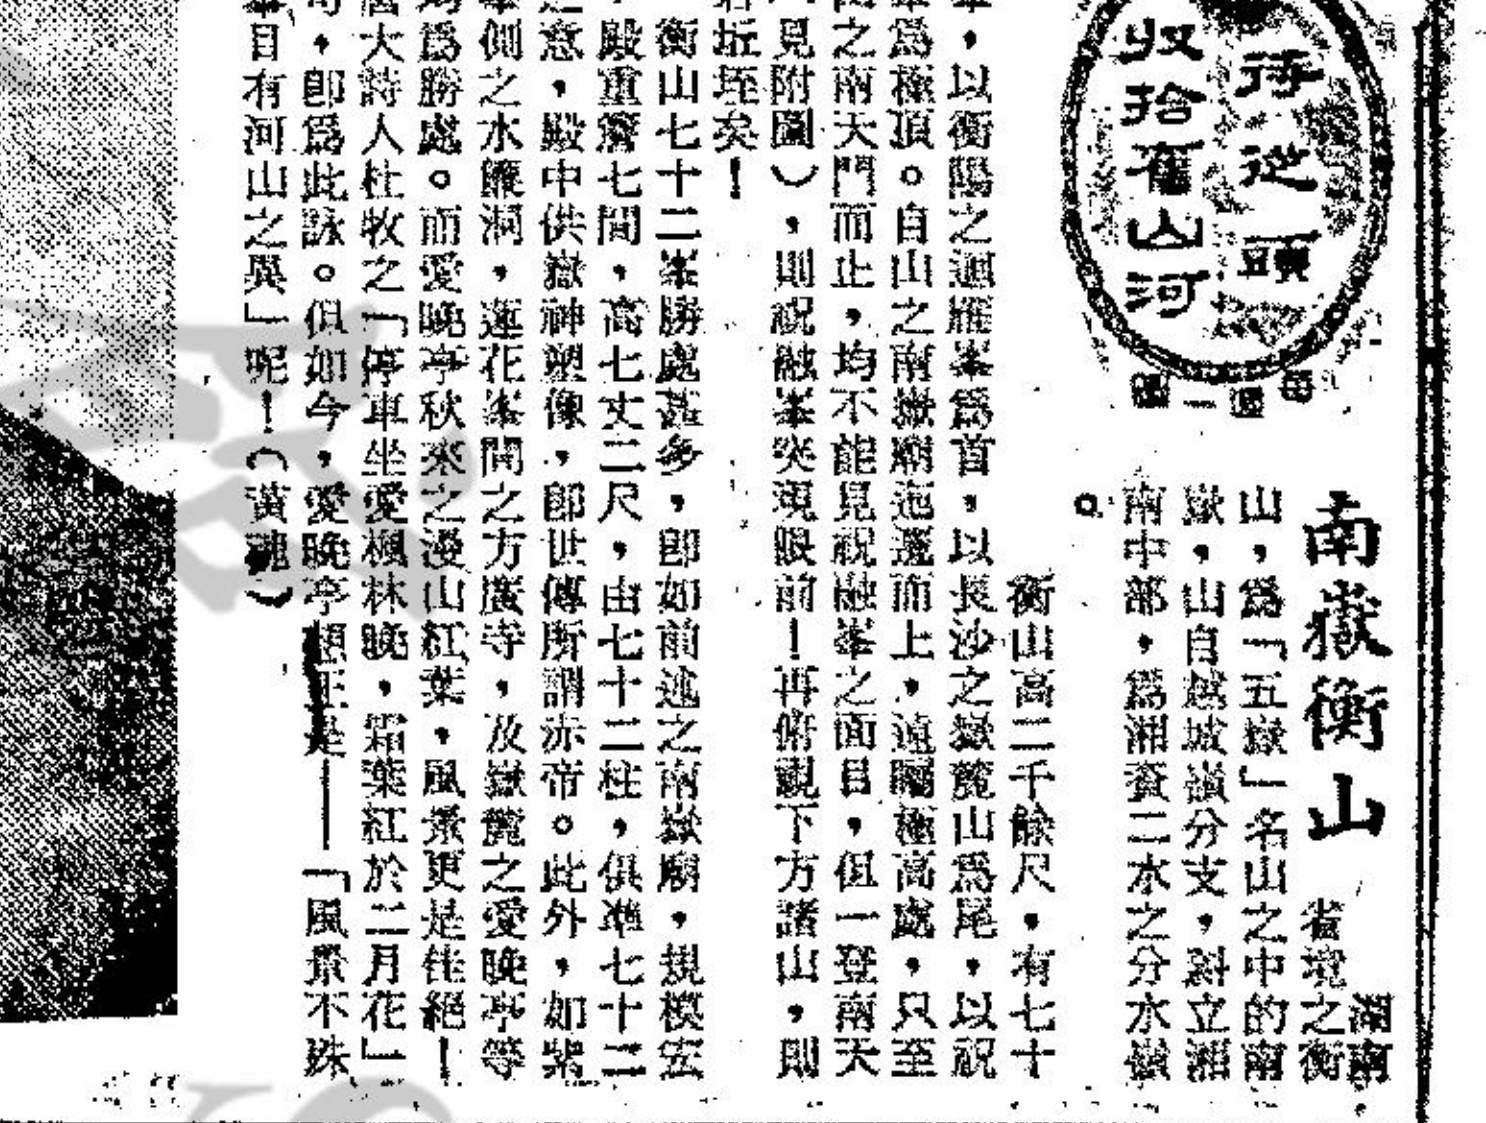 待從頭
收拾舊山河
每週一圖
南嶽衡山
湖南
省境之衡
山,爲「五嶽」名山之中的南
嶽,山自越城嶺分支,斜立湘
南中部,爲湘資二水之分水嶺
。
衡山高二千餘尺,有七十
,以衡陽之迴雁峯爲首,以長沙之嶽麓山爲尾,以祝
峯爲極頂。自山之南嶽廟迤邐而上,遠矚極高處,只至
之南天門而止,均不能見祝融峯之面目,但一登南天
見附圖),則祝融峯突現眼前!再俯視下方諸山,則
坵垤矣!
衡山七十二峯勝處甚多,卽如前述之南嶽廟,規模宏
,殿重簷七間,高七丈二尺,由七十二柱,俱準七十二
意,殿中供嶽神塑像,卽世傳所謂赤帝。此外,如紫
側之水簾洞,蓮花峯間之方廣寺,及嶽麓之愛晚亭等
爲勝處。而愛晚亭秋來之漫山紅葉,風景更是佳絕!
大詩人杜牧之「停車坐愛楓林晚,霜葉紅於二月花」
,卽爲此詠。但如今,愛晚亭想正是——「風景不殊
目有河山之異」呢!(黃魂)